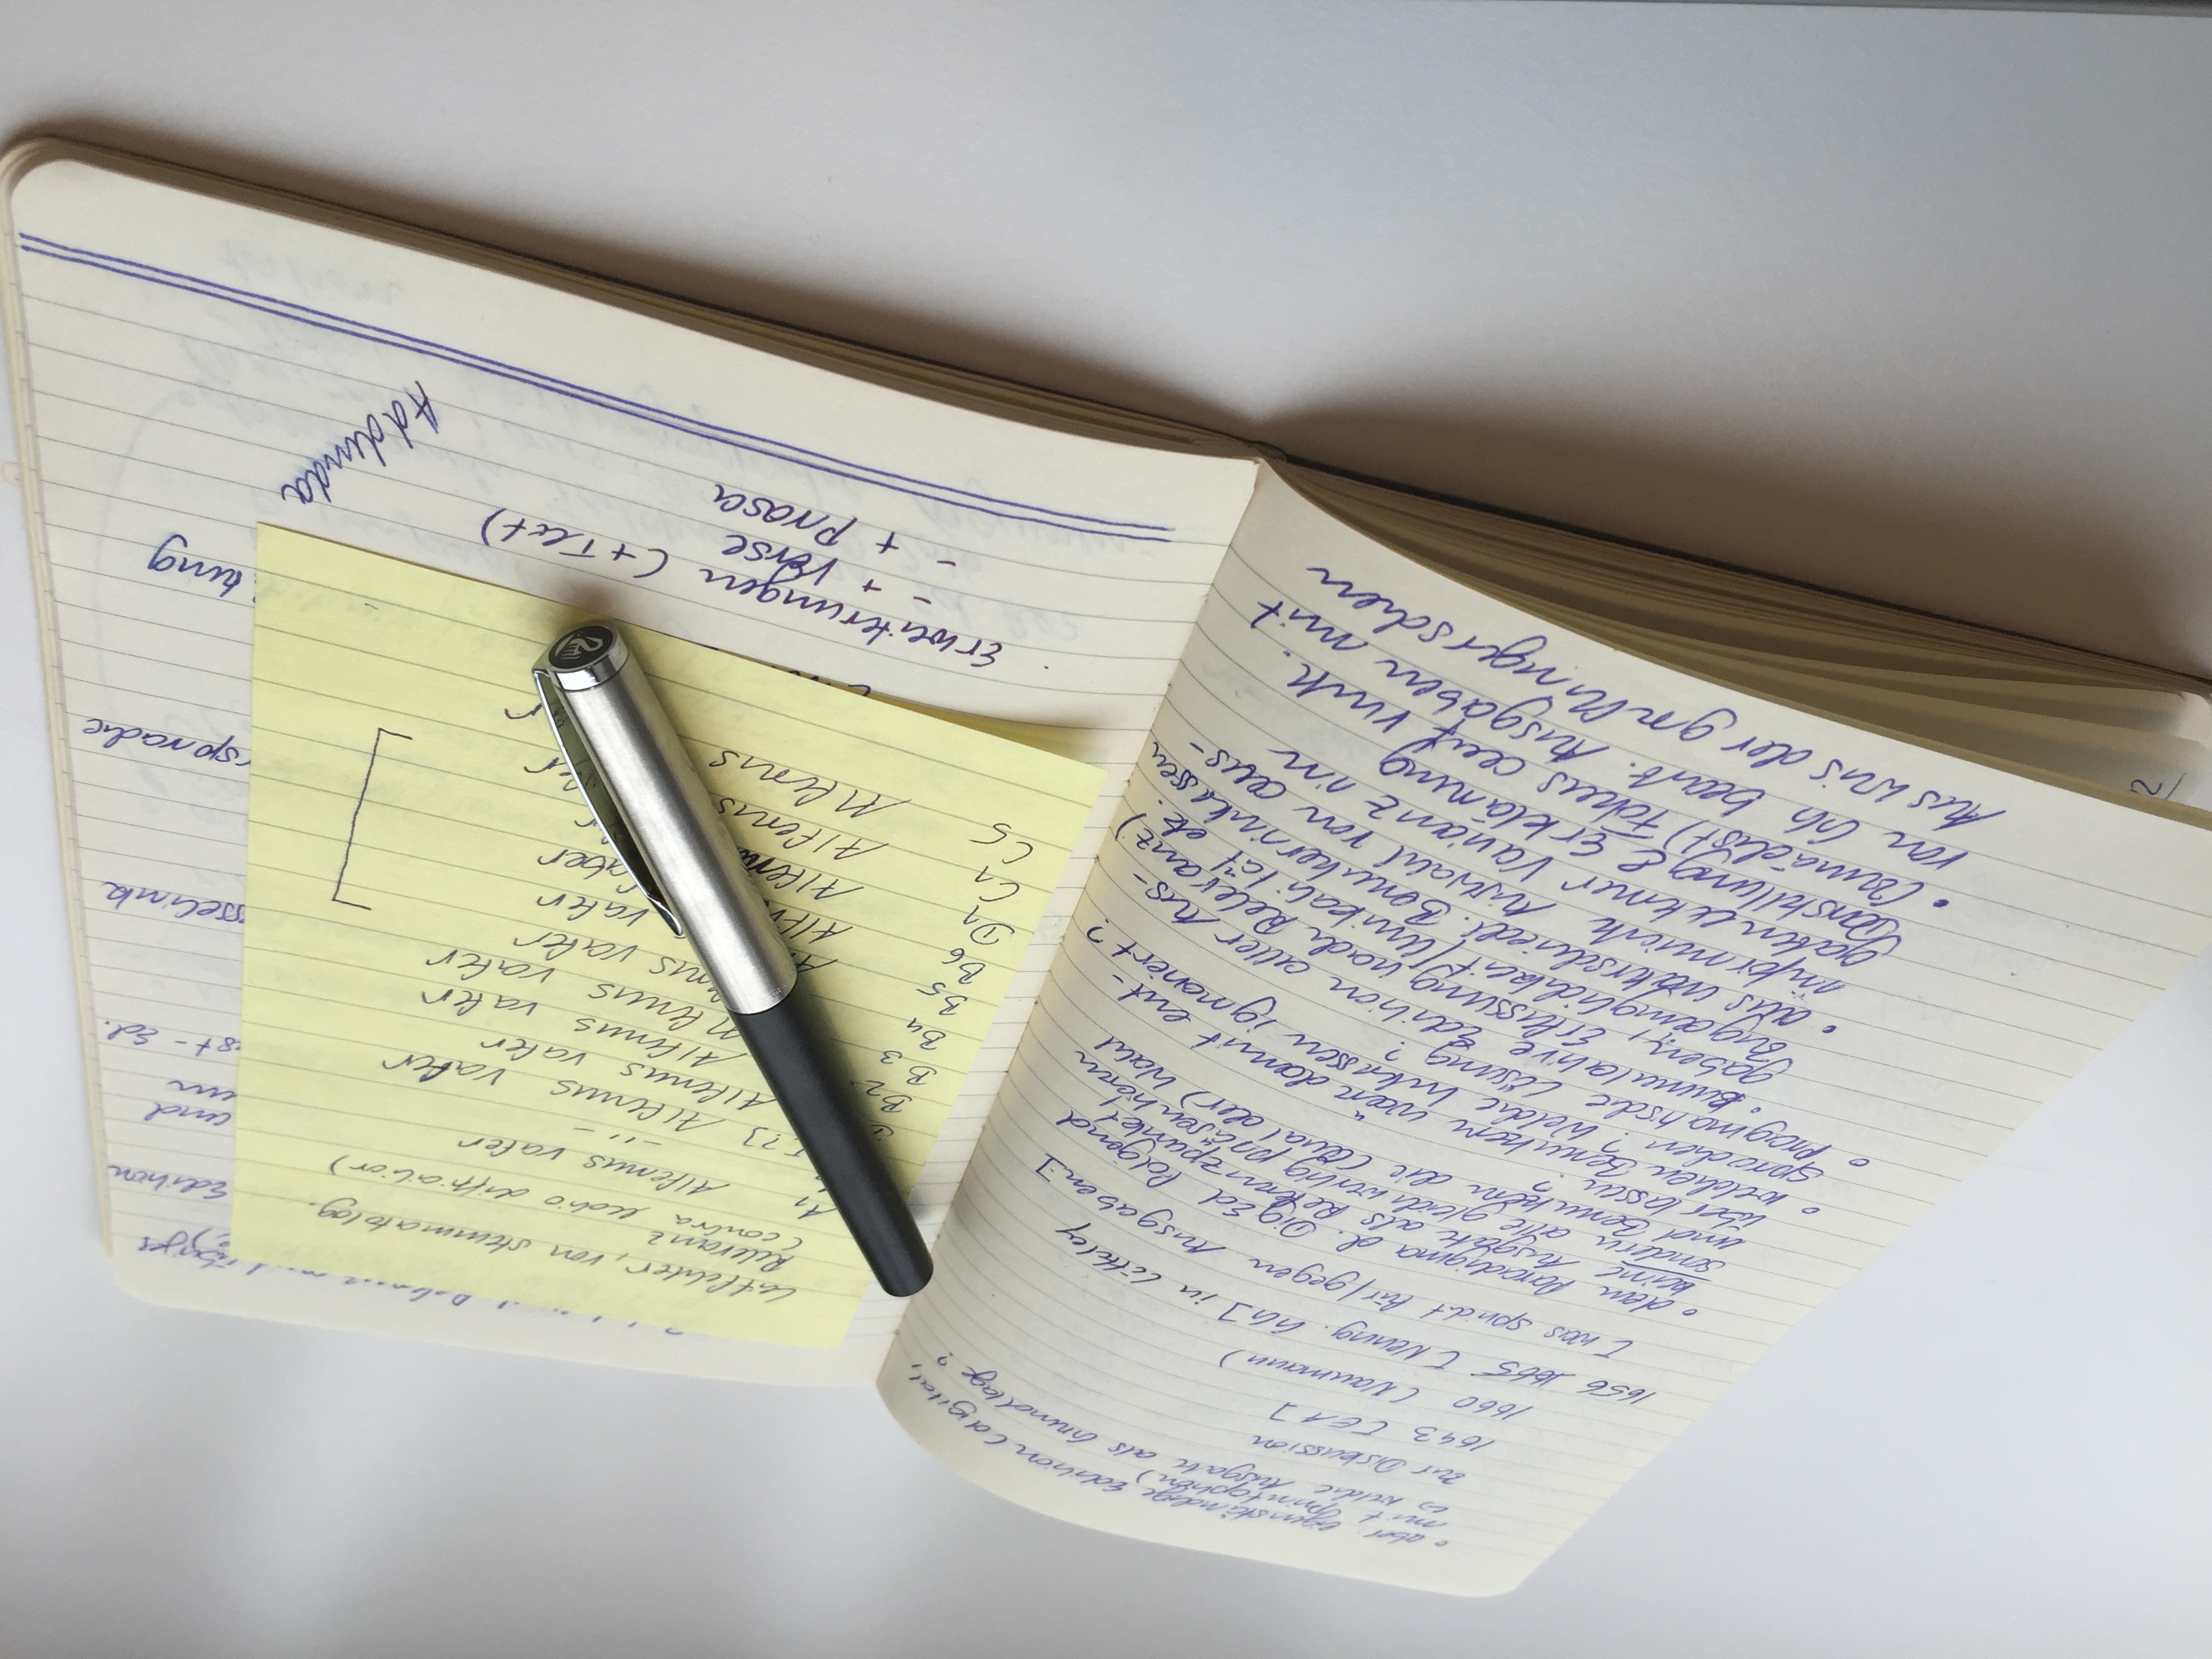 • aber: eigenständige Edition (digital,
mit Printoption)
↪ welche Ausgabe als Grundlage?
zur Diskussion
1643 [EA]
1660 (Naumann)
1656 1665 [Nenng. GG] in Littley
[was spricht für/gegen Ausgaben?]
• dem Paradigma d. DigEd folgend
keine Ausgabe als Referenzpunkt,
sondern alle gleichwertig präsentieren
und Benutzern die (Qual der) Wahl
überlassen?
• welchen Benutzern wäre damit ent-
sprochen? Welche Interessen ignoriert?
• pragmatische Lösung?
• kumulative Edition aller Aus-
gaben, Erfassung nach Relevanz
Zugänglichkeit/Unikalität etc.
• aus unterschiedl. Benutzerinteressen
informierte Auswahl von Aus-
gaben externer Varianz in
Darstellung & Erklärung
• (zunächst) Fokus auf
von GG bearb. Ausgaben mit
Ausweis der greflingerschen
Leitfehler, von stemmatolog.
Relevanz
(contra lectio difficilior)
A1 Alfenus vafer
-"-
[?] Alfenus vafer
B2 Alfenus vafer
B3 Alfenus vafer
B4 Alfenus vafer
B5 vafer
B6 vafer
D1 faber
C1 Alfenus
C5 Alfenus
übriges
Edition
und
est-Ed.
sselink
sprache
tung
Erweiterungen (+Text)
- + Verse
- + Prosa
Addenda